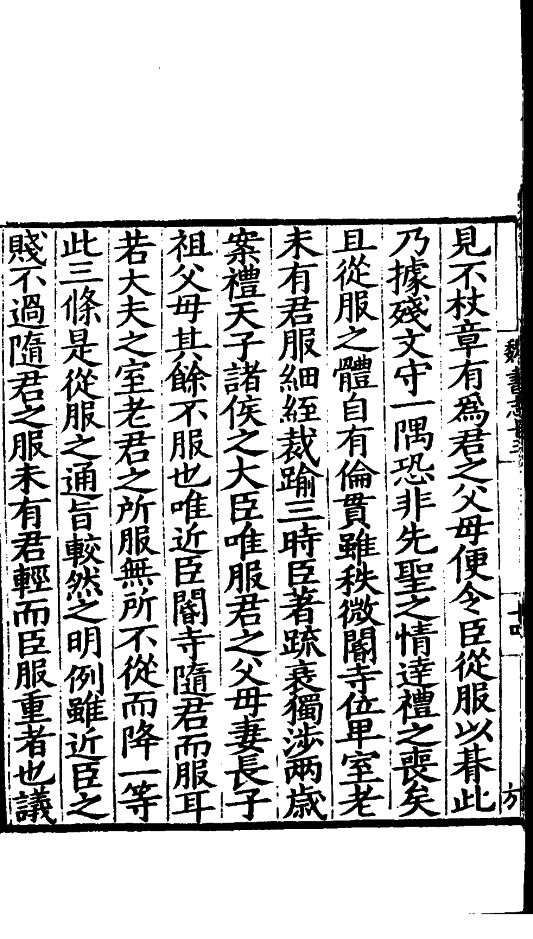 魏書志十三
十四
方
見不杖章有爲君之父母便令臣從服以朞此
乃據殘文守一隅恐非先聖之情達禮之喪矣
且從服之體自有倫貫雖秩微閽寺位卑室老
未有君服細絰裁踰三時臣著疏衰獨涉兩歲
案禮天子諸侯之大臣唯服君之父母妻長子
祖父母其餘不服也唯近臣閽寺隨君而服耳
若大夫之室老君之所服無所不從而降一等
此三條是從服之通旨較然之明例雖近臣之
賤不過隨君之服未有君輕而臣服重者也議